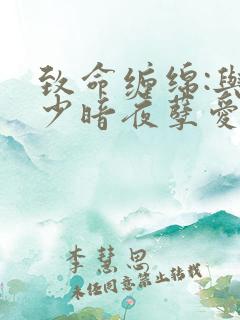 致命缠绵:與
少暗夜孽爱
李慧思
未经同意禁止转载